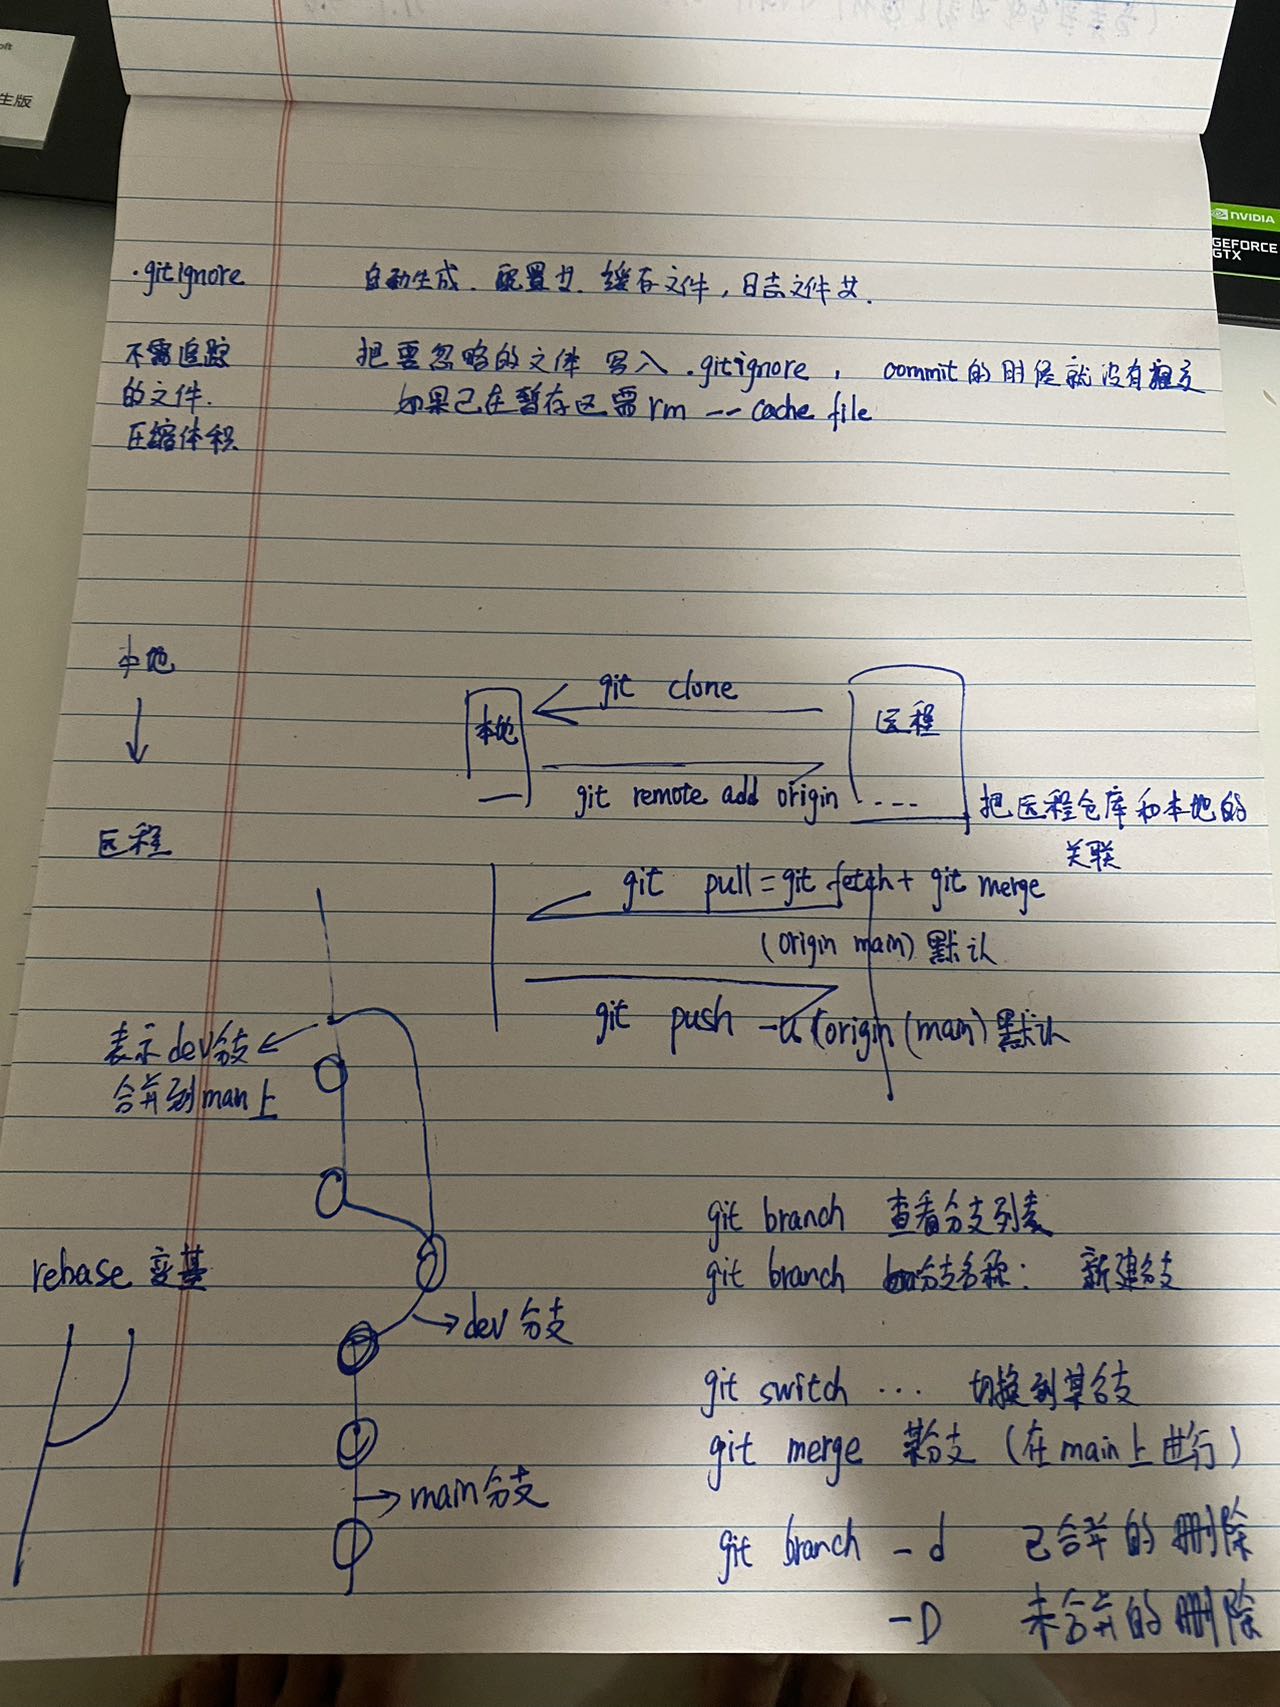 生版
NVIDIA
GEFORCE
GTX
.gitignore 自动生成. 配置文. 缓存文件, 日志文件文.
不需追踪 把要忽略的文件 写入 .gitignore, commit的时候就没有提交
的文件. 如果已在暂存区需rm -- cache file
压缩体积
本地
git clone
本地 远程
git remote add origin ....
把远程仓库和本地的
关联
远程
git pull = git fetch + git merge
(origin main) 默认
git push -u (origin (main) 默认
表示dev分支
合并到man上
git branch 查看分支列表
rebase 变基
git branch 分支名称: 新建分支
dev分支
git switch ... 切换到某分支
git merge 某分支 (在main上进行)
main分支
git branch -d 已合并的删除
-D 未合并的删除